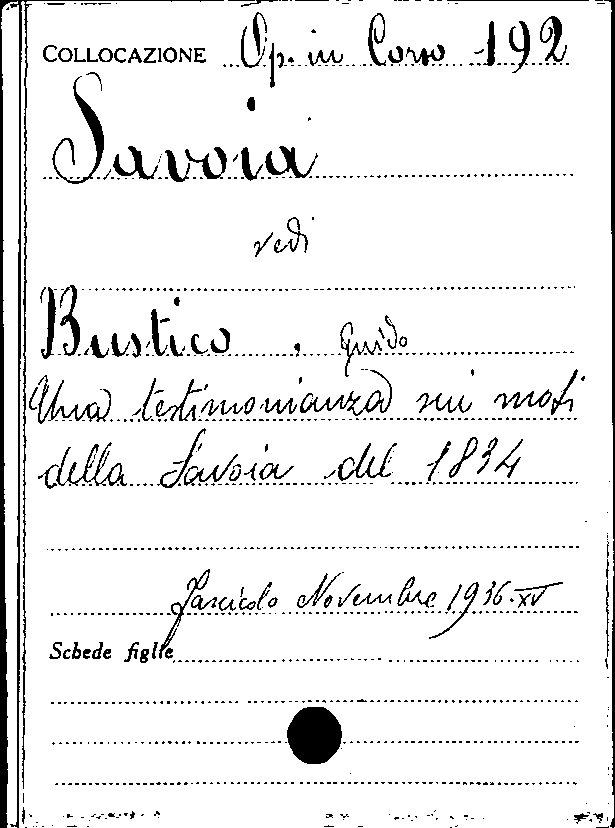 COLLOCAZIONE Op. in Corso 192
Savoia
vedi
Bustico, Guido
Una testimonianza sui moti
della Savoia del 1834
Fascicolo Novembre 1936-XV
Schede figlie